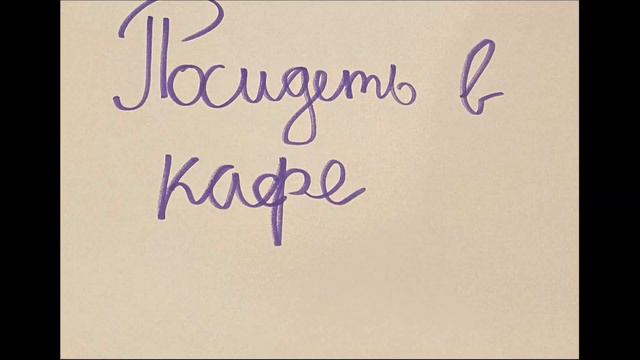 Посидеть в
кафе